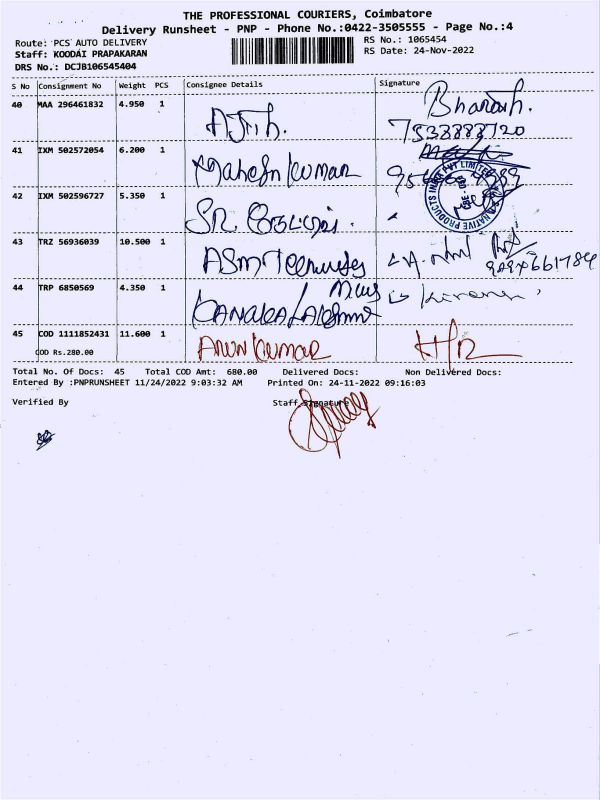 THE PROFESSIONAL COURIERS, Coimbatore
Delivery Runsheet - PNP - Phone No.:0422-3505555 - Page No.:4
Route: PCS AUTO DELIVERY
RS No.: 1065454
Staff: KOODAI PRAPAKARAN
RS Date: 24-Nov-2022
DRS No.: DCJB106545404
S No Consignment No Weight PCS Consignee Details Signature
40 MAA 296461832 4.950 1 Ajith. Bharath.
7538888720
41 IXM 502572054 6.200 1 Mahesh Kumar
42 IXM 502596727 5.350 1 SR.
NATIVE PRODUCTS INDIA PVT LIMITED
43 TRZ 56936039 10.500 1 ASM
44 TRP 6850569 4.350 1 Kanaka Lakshmi
45 COD 1111852431 11.600 1 Arun Kumar
COD Rs.280.00
Total No. Of Docs: 45 Total COD Amt: 680.00 Delivered Docs: Non Delivered Docs:
Entered By :PNPRUNSHEET 11/24/2022 9:03:32 AM Printed On: 24-11-2022 09:16:03
Verified By Staff Signature